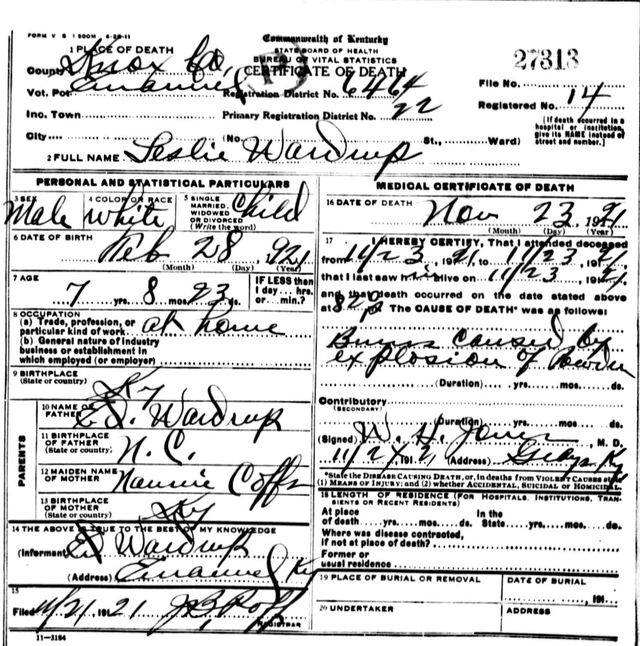 FORM V S 1 500M 6-28-11
Commonwealth of Kentucky
STATE BOARD OF HEALTH
BUREAU OF VITAL STATISTICS
CERTIFICATE OF DEATH
27313
1 PLACE OF DEATH
County Knox Co.
Vot. Pct. Emanuel
Registration District No. 6464
File No.
Inc. Town
Primary Registration District No. 22
Registered No. 14
City (No. St., Ward)
[If death occurred in a hospital or institution, give its NAME instead of street and number.]
2 FULL NAME Leslie Wardrup
PERSONAL AND STATISTICAL PARTICULARS
3 SEX Male
4 COLOR OR RACE white
5 SINGLE MARRIED WIDOWED OR DIVORCED (Write the word) Child
6 DATE OF BIRTH Feb 28, 921
(Month) (Day) (Year)
7 AGE 7 yrs. 8 mos. 23 ds.
IF LESS than 1 day... hrs. or min.?
8 OCCUPATION
(a) Trade, profession, or particular kind of work at home
(b) General nature of industry business or establishment in which employed (or employer)
9 BIRTHPLACE (State or country) Ky
PARENTS
10 NAME OF FATHER Ed. Wardrup
11 BIRTHPLACE OF FATHER (State or country) N. C.
12 MAIDEN NAME OF MOTHER Nannie
13 BIRTHPLACE OF MOTHER (State or country) Ky
14 THE ABOVE IS TRUE TO THE BEST OF MY KNOWLEDGE
(Informant) Ed Wardrup
(Address) Emanuel Ky
15
Filed 11/21 1921
REGISTRAR
11-3184
MEDICAL CERTIFICATE OF DEATH
16 DATE OF DEATH Nov 23, 1921
(Month) (Day) (Year)
17 I HEREBY CERTIFY, That I attended deceased
from 11/23, 1921, to 11/23, 1921,
that I last saw him alive on 11/23, 1921,
and that death occurred on the date stated above
at The CAUSE OF DEATH* was as follows:
Burns caused by
explosion of Powder
(Duration) yrs. mos. ds.
Contributory
(SECONDARY)
(Duration) yrs. mos. ds.
(Signed) W. H. Jones, M. D.
11/27, 1921 (Address) Ky
*State the DISEASE CAUSING DEATH, or, in deaths from VIOLENT CAUSES state (1) MEANS OF INJURY; and (2) whether ACCIDENTAL, SUICIDAL or HOMICIDAL
18 LENGTH OF RESIDENCE (FOR HOSPITALS, INSTITUTIONS, TRANSIENTS OR RECENT RESIDENTS)
At place of death yrs. mos. ds.
In the State yrs. mos. ds.
Where was disease contracted, if not at place of death?
Former or usual residence
19 PLACE OF BURIAL OR REMOVAL
DATE OF BURIAL
, 191
20 UNDERTAKER
ADDRESS